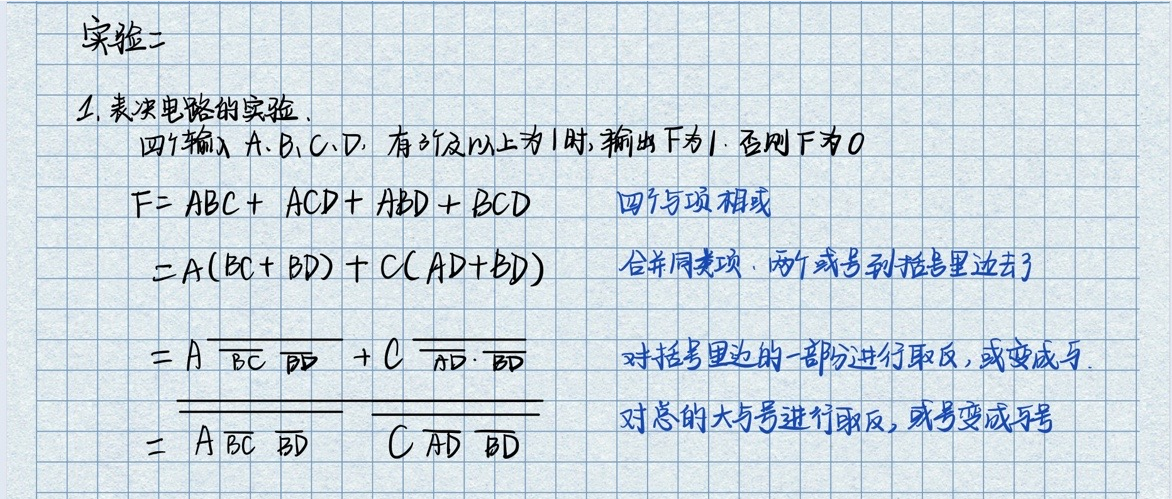 实验二
1. 表决电路的实验.
四个输入 A、B、C、D, 有3个及以上为1时, 输出F为1. 否则F为0
F = ABC + ACD + ABD + BCD 四个与项相或
= A(BC + BD) + C(AD+BD) 合并同类项. 两个或号到括号里边去了
= A \overline{\overline{BC} \overline{BD}} + C \overline{\overline{AD} · \overline{BD}} 对括号里边的一部分进行取反, 或变成与.
= \overline{\overline{A \overline{BC} \overline{BD}} \overline{C \overline{AD} \overline{BD}}} 对总的大与号进行取反, 或号变成与号